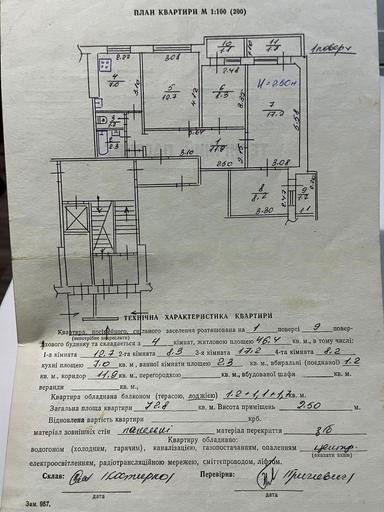 ПЛАН КВАРТИРИ М 1:100 (200)
1 поверх
2.22
3.08
10
1.2
11
1.8
2.48
4
7.0
3.10
5
12.7
4.12
6
8.3
3.32
H = 2.50 м
7
17.2
5.58
3
1.2
2
2.3
5.64
1
11.9
3.10
2.50
3.08
8
8.2
2.47
9
1.2
3.30
1.1
ТЕХНІЧНА ХАРАКТЕРИСТИКА КВАРТИРИ
Квартира, посімейного, спільного заселення розташована на 1 поверсі 9 повер-
(непотрібне викреслити)
хового будинку та складається з 4 кімнат, житловою площею 46,4 кв. м., в тому числі:
1-а кімната 12,7 2-га кімната 8.3 3-я кімната 17.2 4-та кімната 8.2
кухні площею 7.0 кв. м, ванної кімнати площею 2.3 кв. м, вбиральні (поєднаної) 1.2
кв. м, коридор 11.9 кв. м, перегородкою кв. м, вбудованої шафи кв. м,
веранди кв. м,
Квартира обладнана балконом (терасою, лоджією) кв. м.
Загальна площа квартири 72.8 кв. м. Висота приміщень 2.50 м.
Відновлена вартість квартири крб.
матеріал зовнішніх стін панельні матеріал перекриття з/б
Квартиру обладнано:
водогоном (холодним, гарячим), каналізацією, газопостачанням, опаленням центр.
(вказати яким)
електроосвітленням, радіотрансляційною мережею, сміттєпроводом, ліфтом.
Склав: Перевірила:
дата дата
Зам. 957.